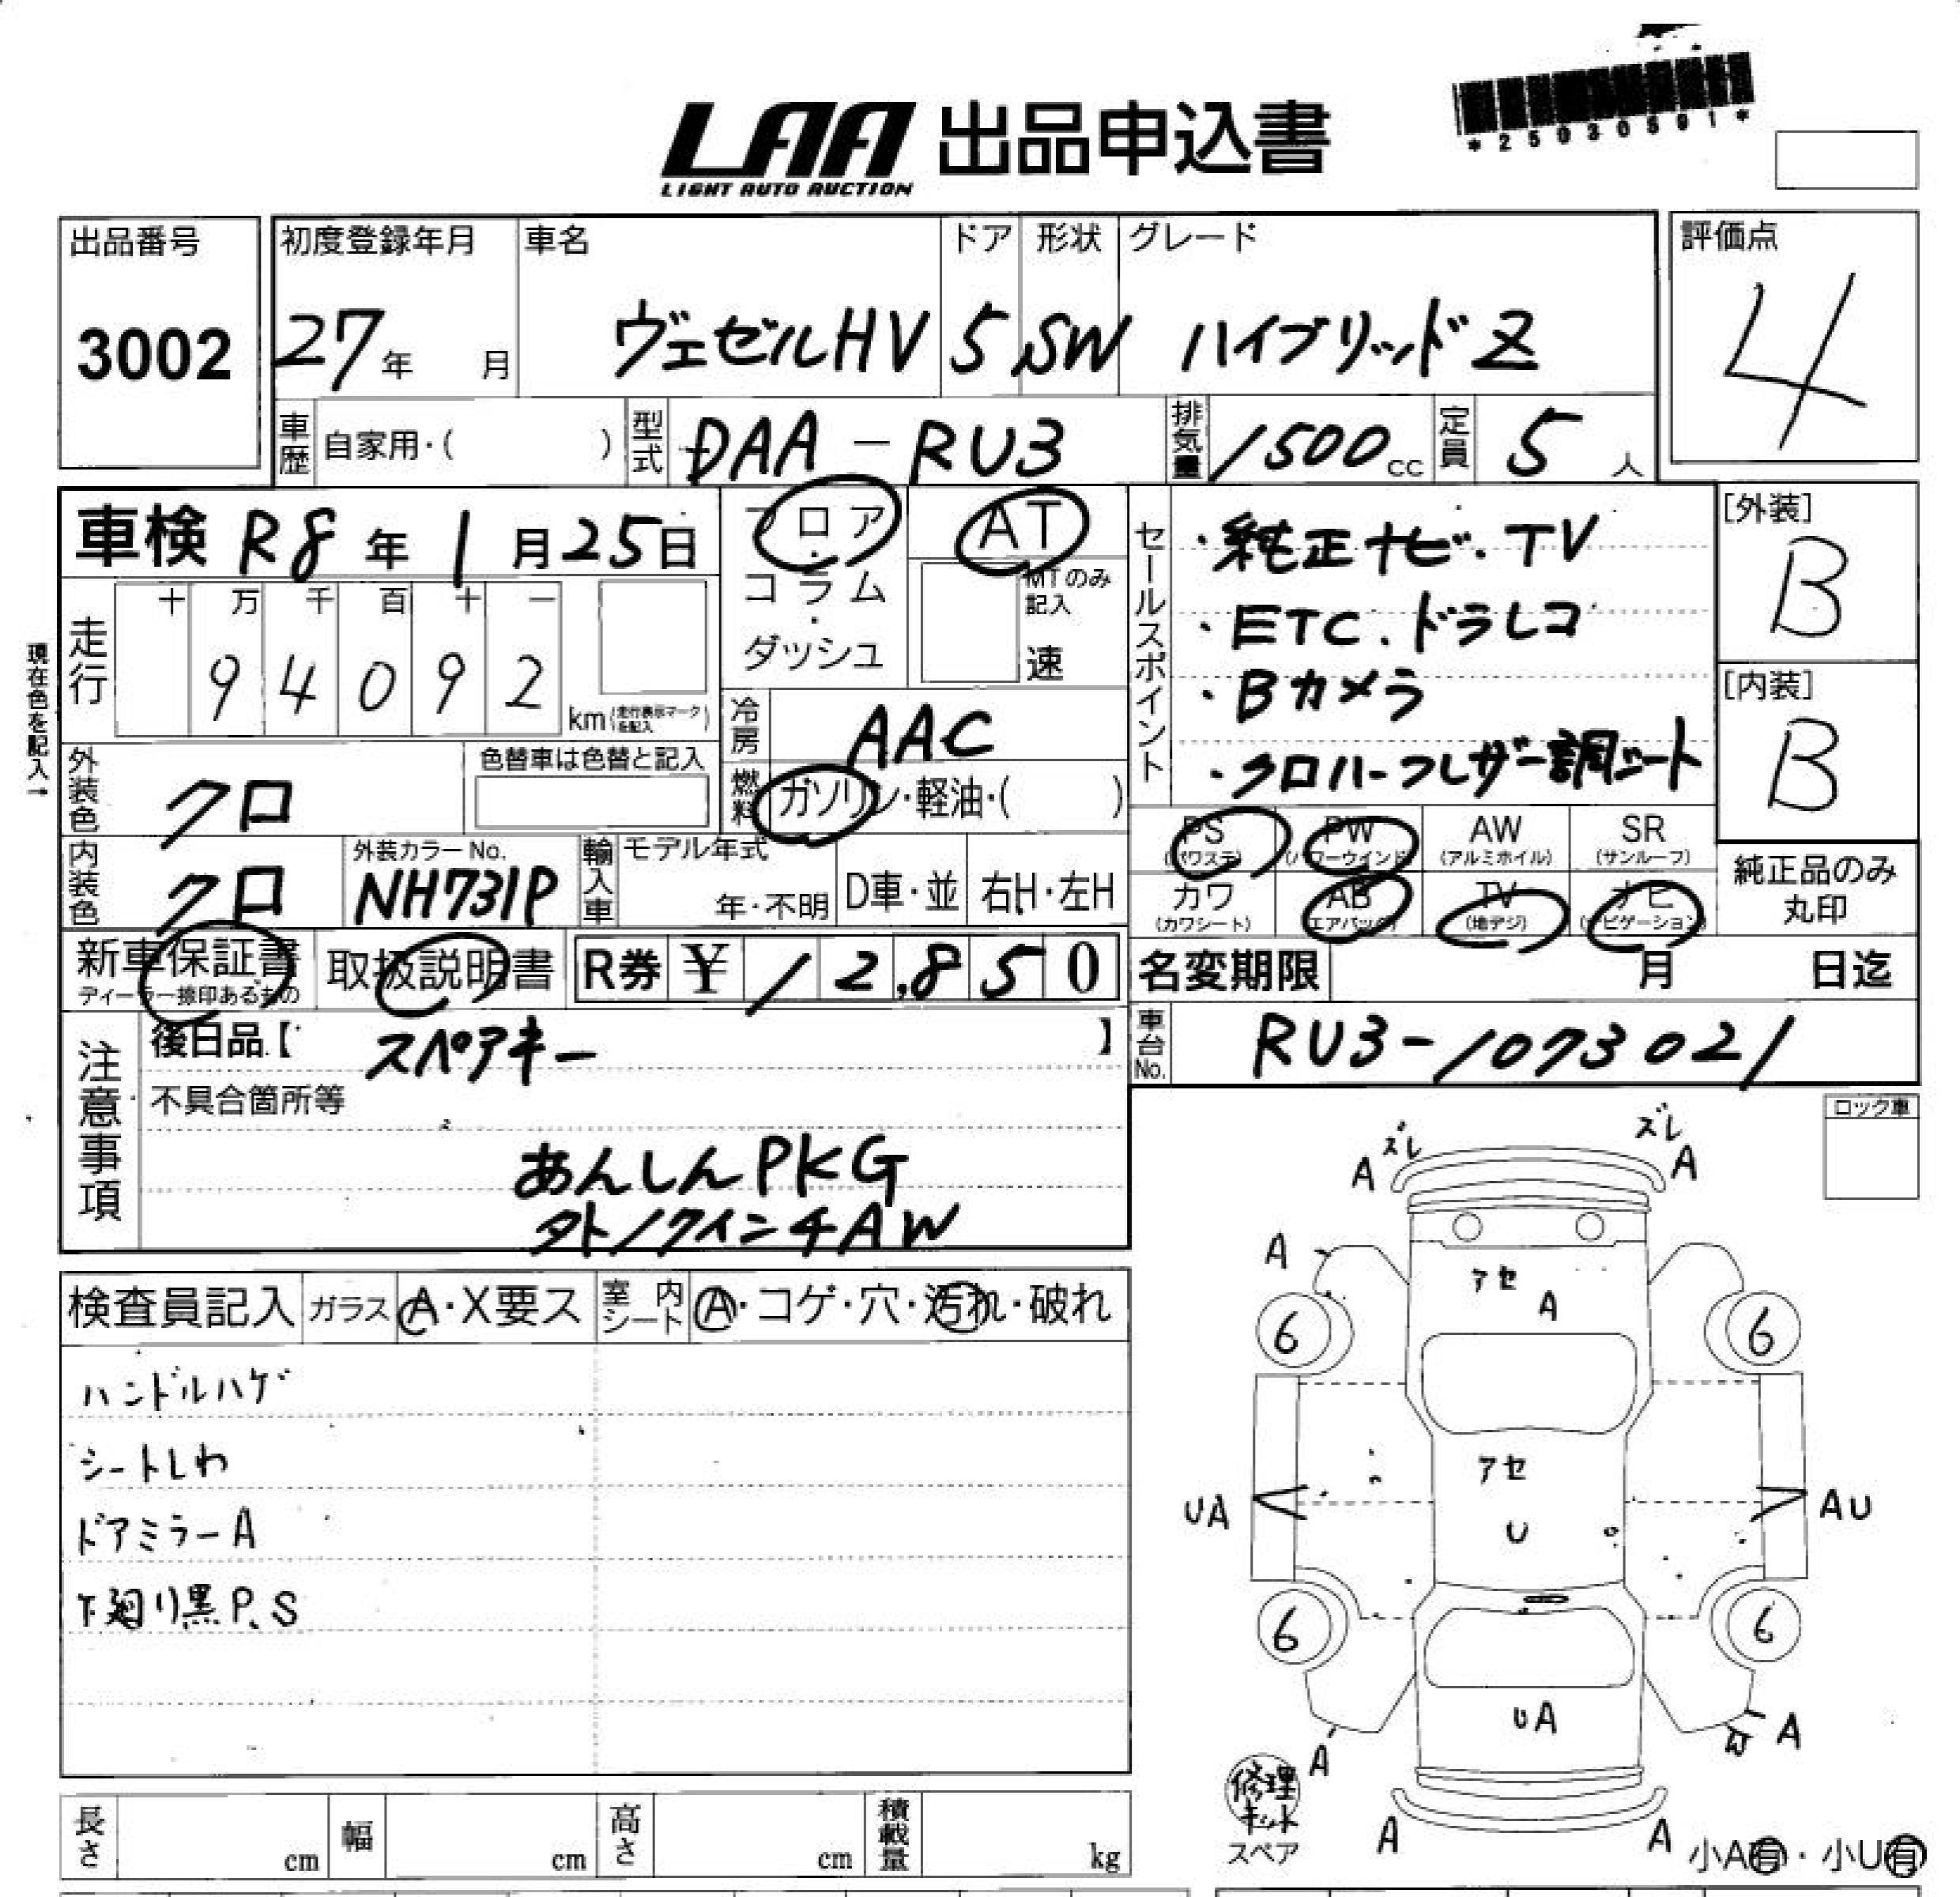 LAA 出品申込書
LIGHT AUTO AUCTION
*25030591*
出品番号
3002
初度登録年月
27年 月
車名
ヴェゼルHV
ドア
5
形状
SW
グレード
ハイブリッドZ
評価点
4
車歴 自家用・( )
型式 DAA-RU3
排気量 1500cc
定員 5人
車検 R8年1月25日
フロア・コラム・ダッシュ
AT
MTのみ記入
速
セールスポイント
・純正ナビ・TV
・ETC.ドラレコ
・Bカメラ
・クロハーフレザー調シート
[外装]
B
[内装]
B
現在色を記入→
走行
十 万 千 百 十 一
9 4 0 9 2
km(走行表示マークを記入)
冷房 AAC
燃料 ガソリン・軽油・( )
外装色 クロ
色替車は色替と記入
内装色 クロ
外装カラーNo.
NH731P
輸入車
モデル年式
年・不明
D車・並
右H・左H
PS (パワステ)
PW (パワーウインド)
AW (アルミホイル)
SR (サンルーフ)
カワ (カワシート)
AB (エアバック)
TV (地デジ)
ナビ (ナビゲーション)
純正品のみ丸印
新車保証書
ディーラー捺印あるもの
取扱説明書
R券 ¥12,850
名変期限 月 日迄
注意事項
後日品【 スペアキー 】
車台No. RU3-1073021
不具合箇所等
あんしんPKG
ロック車
検査員記入
ガラス A・X要ス
室内シート A・コゲ・穴・汚れ・破れ
ハンドルハゲ
シートしわ
ドアミラーA
下廻り黒P.S
ズレ
A
ズレ
A
A
アセ
A
6
6
アセ
UA
AU
U
6
6
UA
A
A
W
修理キット
スペア
A
A
小A有・小U有
長さ cm
幅 cm
高さ cm
積載量 kg